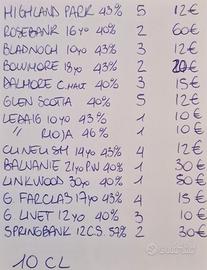 HIGHLAND PARK 43% 5 12€
ROSEBANK 16yo 40% 2 60€
BLADNOCH 10yo 43% 3 12€
BOWMORE 18yo 43% 2 20€
DALMORE C.MALT 40% 3 15€
GLEN SCOTIA 40% 5 12€
LEDAIG 10yo 43% 1 10€
" RIOJA 46% 1 10€
CLINELISH 14yo 43% 4 12€
BALVANIE 21yo PW 40% 1 30€
LINKWOOD 30yo 40% 1 50€
G. FARCLAS 17yo 43% 4 15€
G. LIVET 12yo 40% 3 10€
SPRINGBANK 12 C.S. 57% 2 30€
10 CL